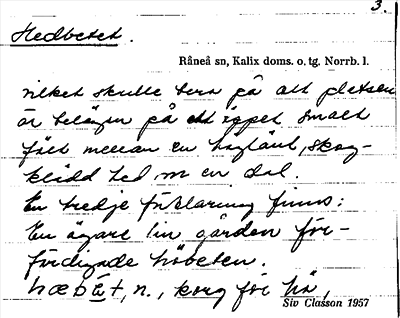 3.
Hedbetet.
Råneå sn, Kalix doms. o. tg. Norrb. l.
vilket skulle bero på att platsen
är belägen på ett öppet smalt
fält mellan en högländ, skog-
klädd hed, m en dal.
En tredje förklaring finns:
En ägare till gården för-
färdigade höbeten.
hæbét, n., korg för hö,
Siv Classon 1957